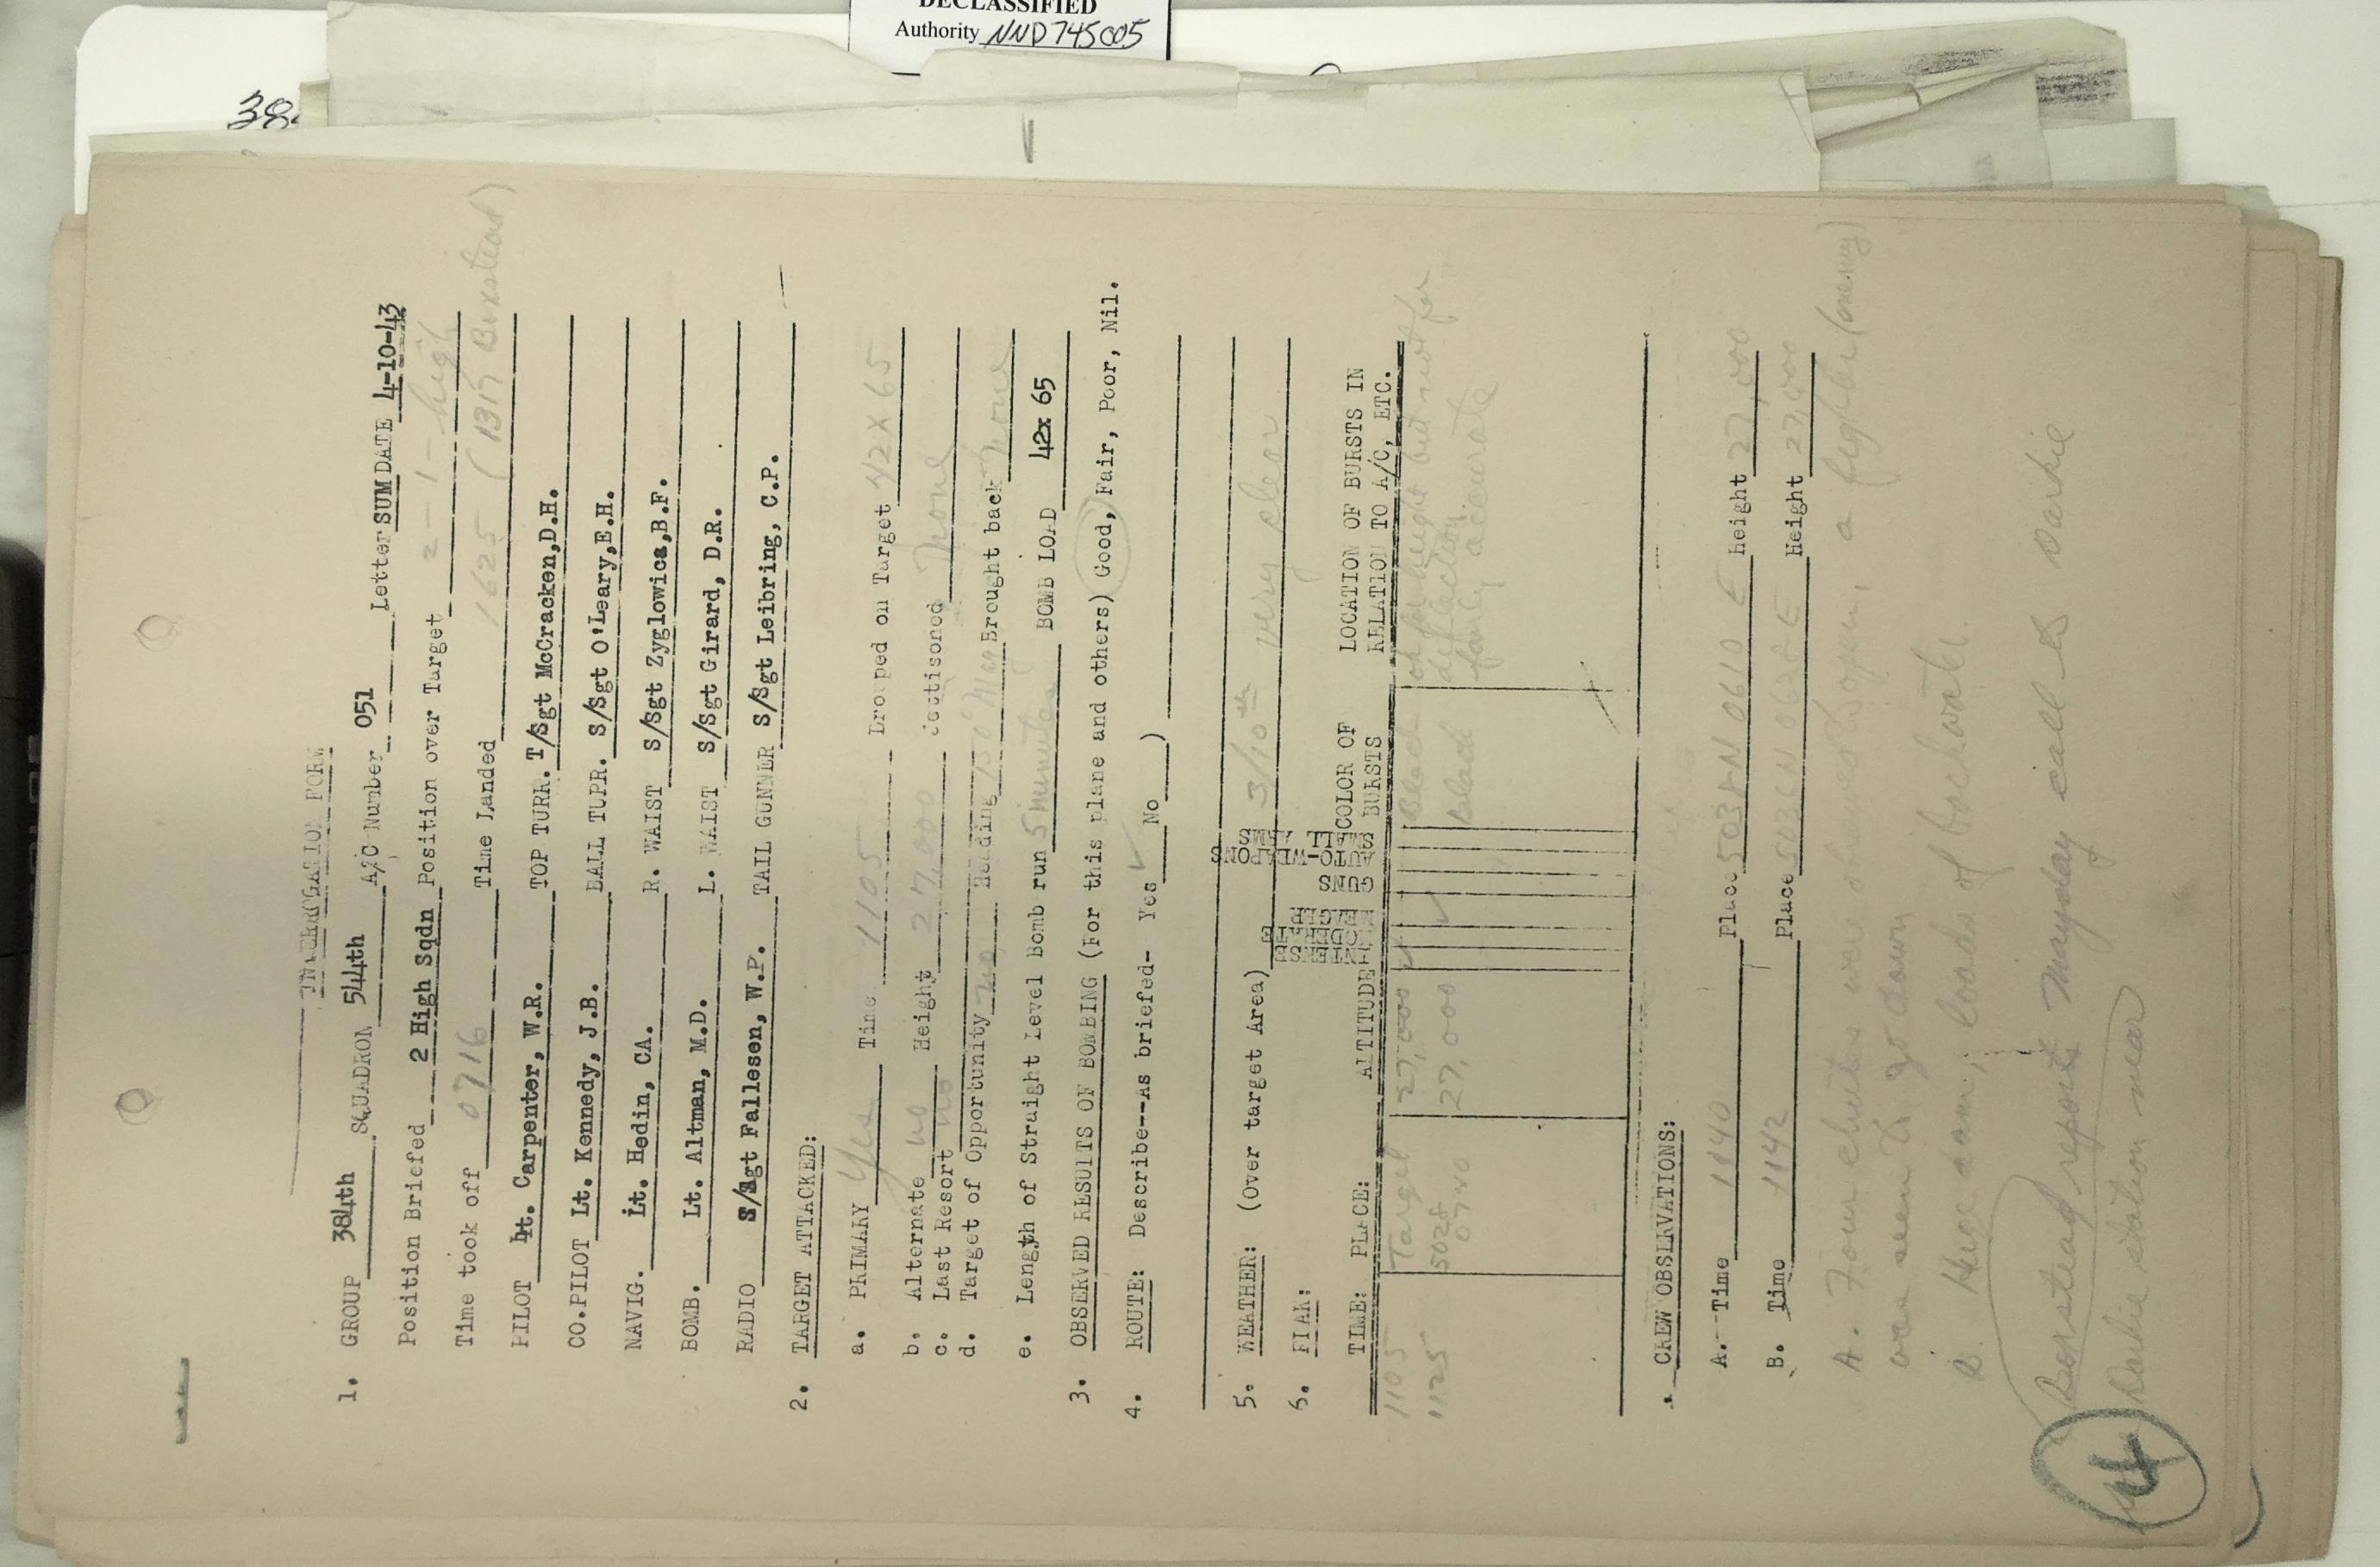 DECLASSIFIED
Authority NND745005
INTERROGATION FORM
1. GROUP 384th SQUADRON 544th A/C Number 051 Letter SUM DATE 4-10-43
Position Briefed 2 High Sqdn Position over Target 2 - 1 - high
Time took off 0716 Time Landed 1625 (1317 Boxstead)
PILOT Lt. Carpenter, W.R. TOP TURR. T/Sgt McCracken,D.H.
CO.PILOT Lt. Kennedy, J.B. BALL TURR. S/Sgt O'Leary,E.H.
NAVIG. Lt. Hedin, CA. R. WAIST S/Sgt Zyglowicz,B.F.
BOMB. Lt. Altman, M.D. L. WAIST S/Sgt Girard, D.R.
RADIO S/Sgt Fallesen, W.P. TAIL GUNNER S/Sgt Leibring, C.P.
2. TARGET ATTACKED:
a. PRIMARY Yes Time 1105 Dropped on Target 42X65
b. Alternate no Height 27,000 Jettisoned None
c. Last Resort no
d. Target of Opportunity no Heading 150° Mag Brought back None
e. Length of Straight Level Bomb run 5 minutes BOMB LOAD 42x 65
3. OBSERVED RESULTS OF BOMBING (For this plane and others) Good, Fair, Poor, Nil.
4. ROUTE: Describe--As briefed- Yes ✓ No )
5. WEATHER: (Over target Area) 3/10th very clear
6. FLAK:
TIME: PLACE: ALTITUDE INTENSE MODERATE MEAGER GUNS AUTO-WEAPONS SMALL ARMS COLOR OF BURSTS LOCATION OF BURSTS IN RELATION TO A/C, ETC.
1105 Target 27,000 ✓ Black ok for height but not for deflection
1125 5028 0740 27,000 ✓ Black fairly accurate
CREW OBSERVATIONS:
A. Time 1140 Place 0610 E Height 27,000
B. Time 1142 Place Height 27,000
A. Four chutes were observed open, a fighter (enemy)
was seen to go down
B. Huge dam, loads of backwater
Boxstead reports Mayday call to Darkie
Darkie station near
14